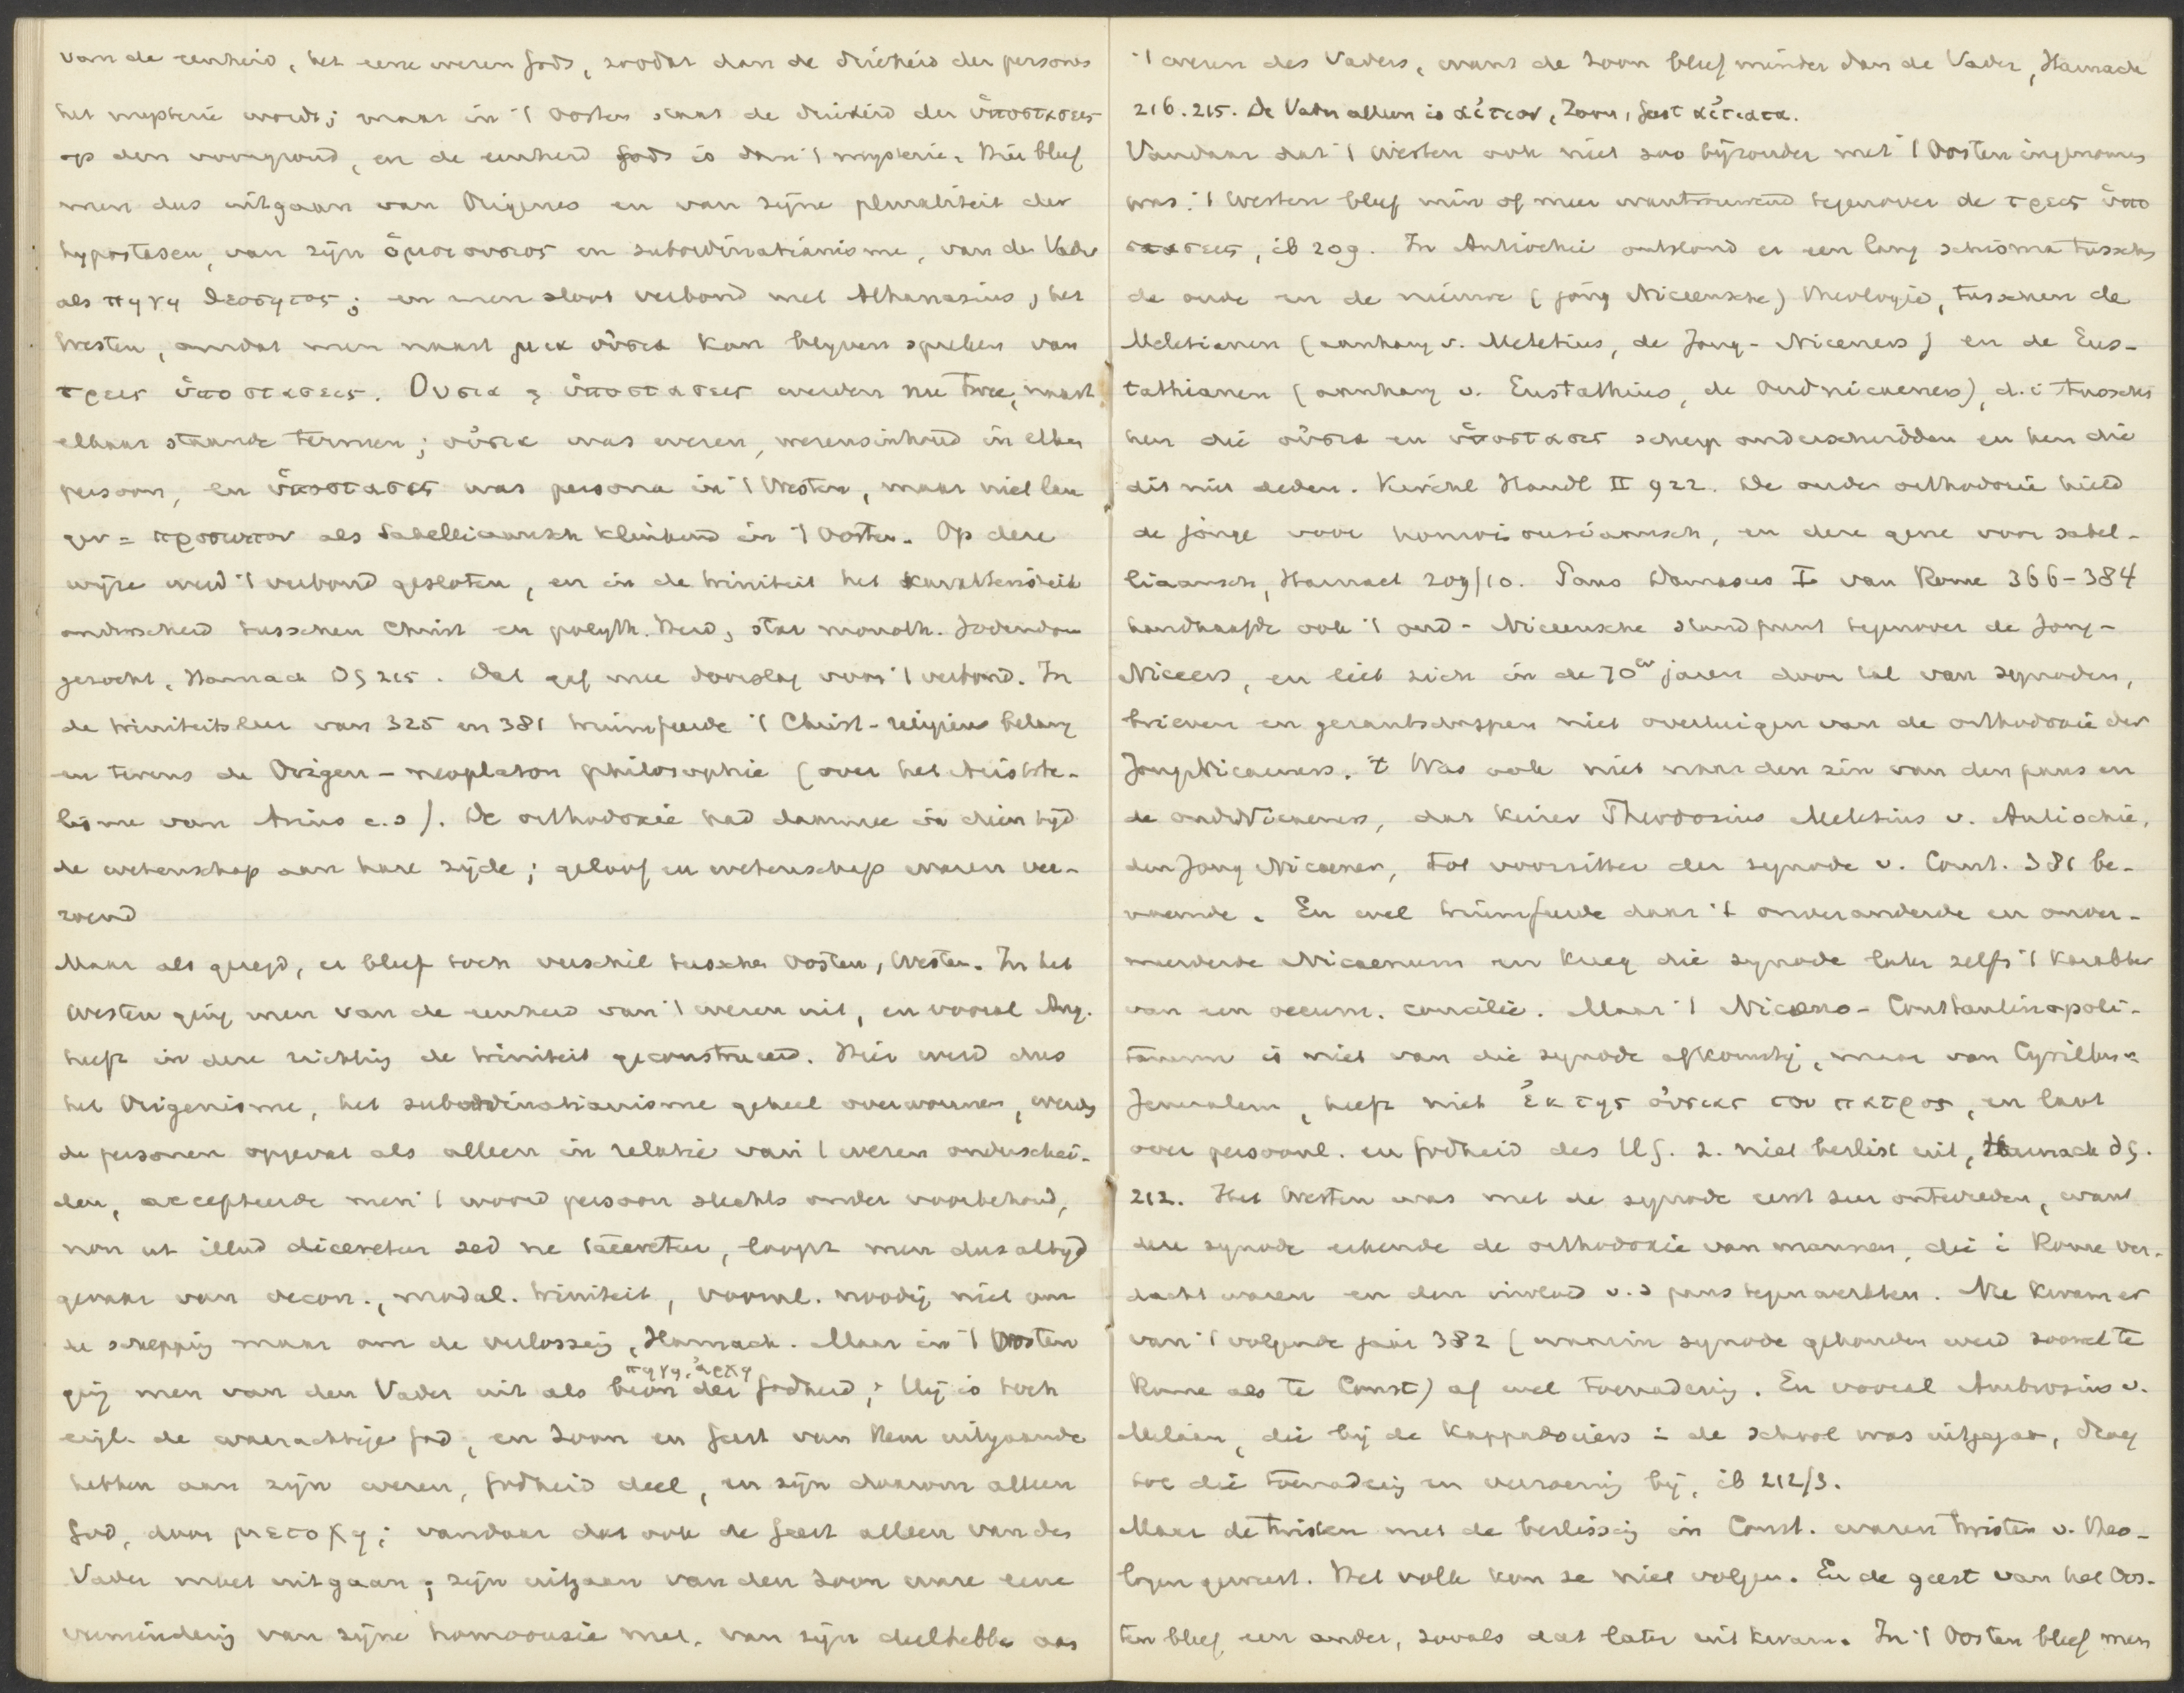 van de eenheid, het eene wezen Gods, zoodat dan de drieheid der persones
het mysterie wordt; maar in 't Oosten staat de drieheid der ὑποστασεις
op den voorgrond, en de eenheid Gods is dan 't mysterie. Hier bleef
men dus uitgaan van Origenes en van zijne pluraliteit der
hypostasen, van zijn ὁμοιουσιος en subordinatianisme, van den Vader
als πηγη θεοτητος; en men sloot verbond met Athanasius, het
Westen, omdat men naast μια οὐσια kon blijven spreken van
τρεις ὑποστασεις. Ουσια en ὑποστασεις werden nu twee, naast
elkaar staande termen; οὐσια was wezen, wezensinhoud in elken
persoon, en ὑποστασις was persona in 't Westen, maar niet lan
ger = προσωπον als Sabelliaansch klinkend in 't Oosten. Op deze
wijze werd 't verbond gesloten, en in de triniteit het karakteristiek
onderscheid tusschen Christ en polyth. Heid, star monoth. Jodendom
gezocht, Harnack DG 215. Dat gaf mee doorslag voor 't verbond. In
de triniteitsleer van 325 en 381 triumfeerde 't Christ-religieus belang
en tevens de Origen-neoplaton philosophie (over het Aristote-
lisme van Arius c.s). De orthodoxie had daarmee in dien tijd
de wetenschap aan hare zijde; geloof en wetenschap waren ver-
zoend
Maar als gezegd, er bleef toch verschil tusschen Oosten, Westen. In het
Westen ging men van de eenheid van 't wezen uit, en vooral Aug.
heeft in deze richting de triniteit geconstrueerd. Hier werd dus
het Origenisme, het subordinatianisme geheel overwonnen, werden
de personen opgevat als alleen in relatie van 't wezen onderschei-
den, accepteerde men 't woord persoon slechts onder voorbehoud,
non ut illud diceretur sed ne taceretur, loopt men dus altijd
gevaar van oecon., modal. triniteit, voorul. noodig niet om
de schepping maar om de verlossing, Harnack. Maar in 't Oosten
πηγη, ἀρχη
ging men van den Vader uit als bron der Godheid; Hij is toch
eigl. de waarachtige God, en Zoon en Geest van Hem uitgaande
hebben aan zijn wezen, Godheid deel, en zijn daarom alleen
God, door μετοχη; vandaar dat ook de Geest alleen van den
Vader moet uitgaan; zijn uitgaan van den Zoon ware eene
vermindering van zijne homoousie met, van zijn deelhebben aan
't wezen des Vaders, want de Zoon bleef minder dan de Vader, Harnack
216.215. De Vader alleen is αἰτιον, Zoon, Geest αἰτιατα.
Vandaar dat 't Westen ook niet zoo bijzonder met 't Oosten ingenomen
was. 't Westen bleef min of meer wantrouwend tegenover de τρεις ὑπο
στασεις, ib 209. In Antiochië ontstond er een lang schisma tusschen
de oude en de nieuwe (jong Niceensche) theologie, tusschen de
Meletianen (aanhang v. Meletius, de Jong-Niceners) en de Eus-
tathianen (aanhang v. Eustathius, de Oudnicaeners), d.i tusschen
hen die οὐσια en ὑποστασις scherp onderscheidden en hen die
dit niet deden. Kirchl Handl II 922. De oude orthodoxie hield
de jonge voor homoiousiaansch, en deze gene voor sabel-
liaansch, Harnack 209/10. Paus Damasus I van Rome 366-384
handhaafde ook 't oud-Niceensche standpunt tegenover de Jong-
Niceers, en liet zich in de 70er jaren door tal van synoden,
brieven en gezantschappen niet overtuigen van de orthodoxie der
JongNicaeners. 't Was ook niet naar den zin van den paus en
de oudNicaeners, dat keizer Theodosius Meletius v. Antiochië,
den Jong Nicaener, tot voorzitter der synode v. Const. 381 be-
noemde. En wel triumfeerde daar 't onveranderde en onver-
meerderde Nicaenum en kreeg die synode later zelfs 't karakter
van een oecum. concilie. Maar 't Nicaeno-Constantinopoli-
tanum is niet van die synode afkomstig, maar van Cyrillus v.
Jeruzalem, heeft niet ἐκ της οὐσιας του πατρος, en laat
over persoonl. en Godheid des H.G. z. niet beslist uit, Harnack DG.
212. Het Westen was met de synode eerst zeer ontevreden, want
deze synode erkende de orthodoxie van mannen, die i Rome ver-
dacht waren en den invloed v.d paus tegenwerkten. Nu kwam er
van 't volgende jaar 382 (waarin synode gehouden werd zoowel te
Rome als te Const) af wel toenadering. En vooral Ambrosius v.
Milaan, die bij de Kappadociers i de school was uitgegaan, droeg
tot die toenadering en verzoening bij, ib 212/3.
Maar de twisten met de beslissing in Const. waren twisten v. theo-
logen geweest. Het volk kon ze niet volgen. En de geest van het Oos-
ten bleef een ander, zooals dat later uitkwam. In 't Oosten bleef men